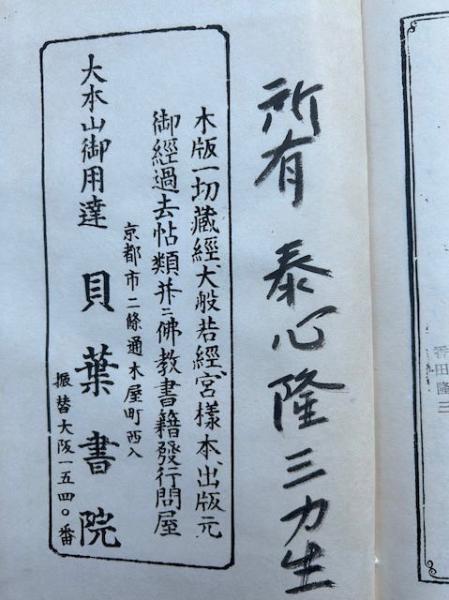 所有 泰心隆三力生
木版一切藏經大般若經宮樣本出版元
御經過去帖類并ニ佛教書籍發行問屋
京都市二條通木屋町西入
大本山御用達 貝葉書院
振替大阪一五四〇番